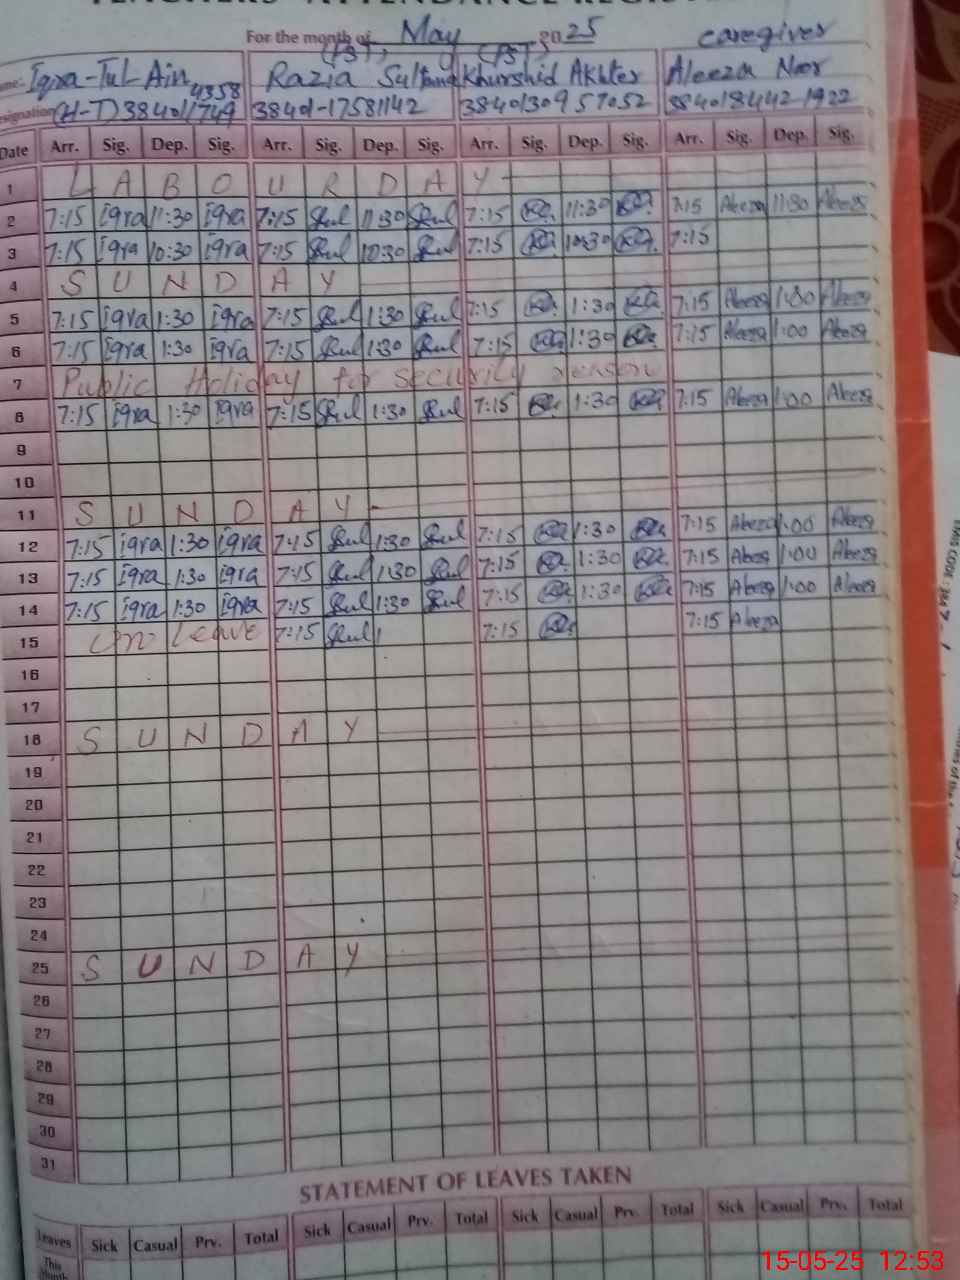 TEACHERS' ATTENDANCE REGISTER
For the month of May 2025
(PST) (PST) caregiver
Name:- Iqra-Tul-Ain Razia Sultana Khurshid Akhter Aleeza Noor
Designation (H-T) 384011749 4358 38401-17581142 3840130957052 384018442-1922
Date Arr. Sig. Dep. Sig. Arr. Sig. Dep. Sig. Arr. Sig. Dep. Sig. Arr. Sig. Dep. Sig.
1 L A B O U R D A Y
2 7:15 iqra 11:30 iqra 7:15 11:30 7:15 11:30 7:15 Aleeza 11:30 Aleeza
3 7:15 iqra 10:30 iqra 7:15 10:30 7:15 10:30 7:15
4 S U N D A Y
5 7:15 iqra 1:30 iqra 7:15 1:30 7:15 1:30 7:15 Aleeza 1:00 Aleeza
6 7:15 iqra 1:30 iqra 7:15 1:30 7:15 1:30 7:15 Aleeza 1:00 Aleeza
7 Public Holiday for security reason
8 7:15 iqra 1:30 iqra 7:15 1:30 7:15 1:30 7:15 Aleeza 1:00 Aleeza
9
10
11 S U N D A Y
12 7:15 iqra 1:30 iqra 7:15 1:30 7:15 1:30 7:15 Aleeza 1:00 Aleeza
13 7:15 iqra 1:30 iqra 7:15 1:30 7:15 1:30 7:15 Aleeza 1:00 Aleeza
14 7:15 iqra 1:30 iqra 7:15 1:30 7:15 1:30 7:15 Aleeza 1:00 Aleeza
15 On Leave 7:15 7:15 7:15 Aleeza
16
17
18 S U N D A Y
19
20
21
22
23
24
25 S U N D A Y
26
27
28
29
30
31
STATEMENT OF LEAVES TAKEN
Leaves Sick Casual Prv. Total Sick Casual Prv. Total Sick Casual Prv. Total Sick Casual Prv. Total
This Month
15-05-25 12:53